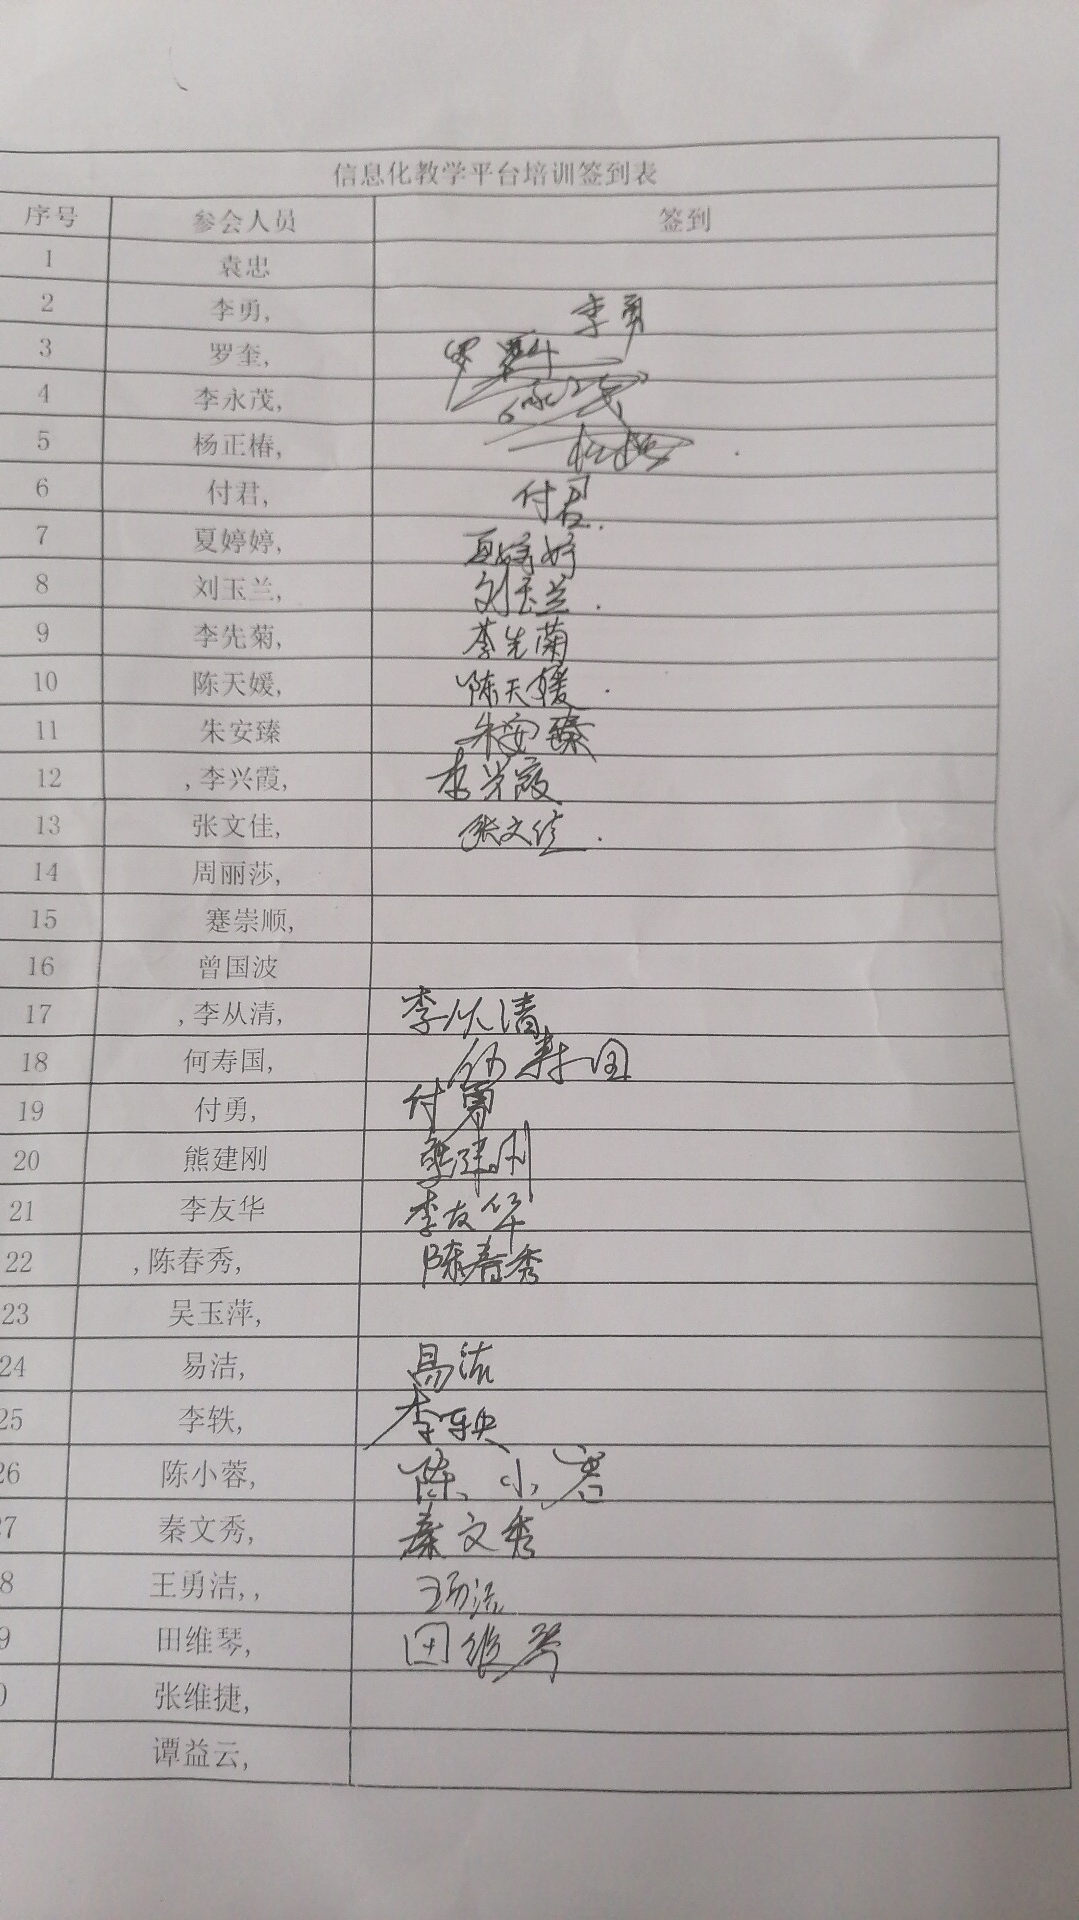 信息化教学平台培训签到表
序号 参会人员 签到
1 袁忠
2 李勇, 李勇
3 罗奎, 罗奎
4 李永茂,
5 杨正椿,
6 付君, 付君.
7 夏婷婷, 夏婷婷
8 刘玉兰, 刘玉兰.
9 李先菊, 李先菊
10 陈天媛, 陈天媛.
11 朱安臻 朱安臻
12 ,李兴霞, 李兴霞
13 张文佳, 张文佳.
14 周丽莎,
15 蹇崇顺,
16 曾国波
17 ,李从清, 李从清
18 何寿国, 何寿国
19 付勇, 付勇
20 熊建刚 熊建刚
21 李友华 李友华
22 ,陈春秀, 陈春秀
23 吴玉萍,
24 易洁, 易洁
25 李轶, 李轶
26 陈小蓉, 陈小蓉
7 秦文秀, 秦文秀
8 王勇洁,, 王勇洁
9 田维琴, 田维琴
张维捷,
谭益云,